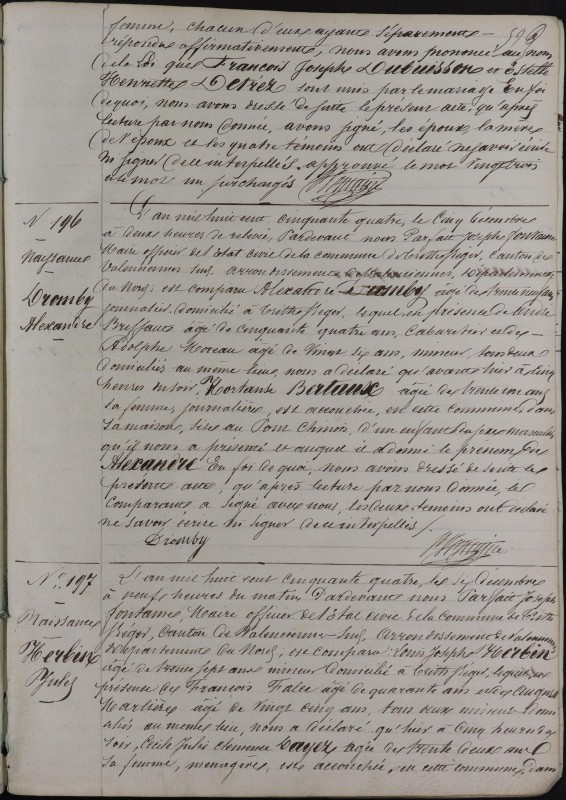 femme, chacun d'eux ayant séparément
répondu affirmativement, nous avons prononcé au nom
de la Loi que François Joseph Dubuisson et Estelle
Henriette Detrez sont unis par le mariage. En foi
de quoi, nous avons dressé de suite le présent acte, qu'après
lecture par nous donnée, avons signé, les époux, la mère
de l'époux et les quatre témoins ont déclaré ne savoir écrire
ni signer de ce interpellés. approuvé le mot vingt trois
et le mot un surchargés
N° 196
Naissance
Dromby
Alexandre
L'an mil huit cent cinquante quatre, le cinq décembre
à deux heures de relevée, Pardevant nous Parfait Joseph Fontaine
Maire officier de l'Etat civil de la commune de Trith St Léger, Canton de
Valenciennes Sud, arrondissement de Valenciennes, Département
du Nord, est comparu Alexandre Dromby âgé de trente
journalier domicilié à Trith St Léger, lequel, en présence de
âgé de cinquante quatre ans, Cabaretier et de
Adolphe Moreau âgé de vingt six ans, mineur, tous deux
domiciliés au même lieu, nous a déclaré qu'avant hier à cinq
heures du soir, Hortense Bertaux âgée de trente ans
sa femme, journalière, est accouchée, en cette commune, dans
sa maison, sise au Pont Chinois, d'un enfant du sexe masculin
qu'il nous a présenté et auquel il a donné le prénom de
Alexandre En foi de quoi, nous avons dressé de suite le
présent acte, qu'après lecture par nous donnée, le
Comparant, a signé avec nous, les deux témoins ont déclaré
ne savoir écrire ni signer de ce interpellés /.
Dromby
N° 197
Naissance
Herbin
Jules
L'an mil huit cent cinquante quatre, le six décembre
à neuf heures du matin Pardevant nous Parfait Joseph
Fontaine, Maire officier de l'Etat civil de la Commune de Trith
St Léger, Canton de Valenciennes-Sud, arrondissement de Valenciennes
Département du Nord, est comparu Louis Joseph Herbin
âgé de trente sept ans mineur domicilié à Trith St Léger, lequel, en
présence de François Falce âgé de quarante ans et de Auguste
Marlière âgé de vingt cinq ans, tous deux mineurs domi-
ciliés au même lieu, nous a déclaré qu'hier à cinq heures du
soir, Cécile Julie Clémence Payez âgée de trente deux ans
sa femme, ménagère, est accouchée, en cette commune, dans